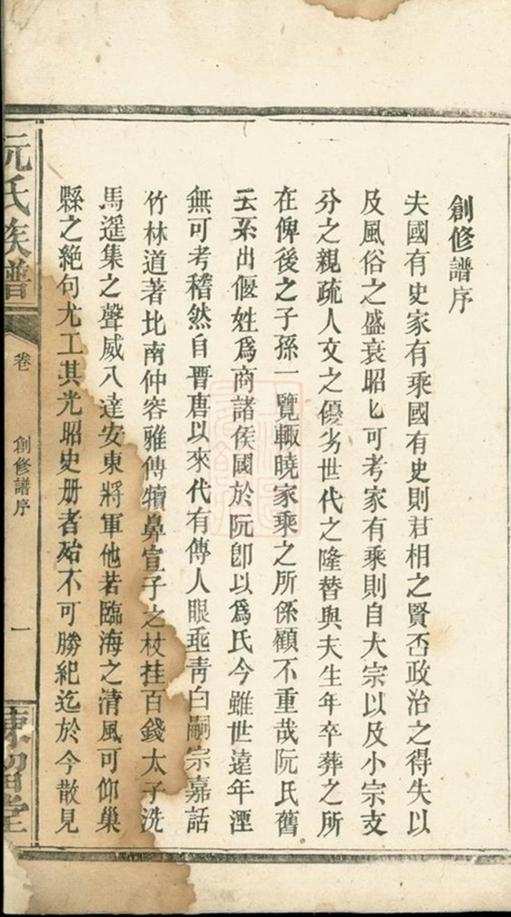 創修譜序
夫國有史家有乘國有史則君相之賢否政治之得失以
及風俗之盛衰昭匕可考家有乘則自大宗以及小宗支
分之親疏人文之優劣世代之隆替與夫生年卒葬之所
在俾後之子孫一覽輙曉家乘之所係顧不重哉阮氏舊
云系出偃姓爲商諸侯國於阮卽以爲氏今雖世遠年湮
無可考稽然自晋唐以來代有傳人眼垂靑白嗣宗嘉話
竹林道著北南仲容雅傳犢鼻宣子之杖挂百錢太子洗
馬遥集之聲威八達安東將軍他若臨海之清風可仰巢
縣之絶句尤工其光昭史册者殆不可勝紀迄於今散見
阮氏族譜
卷
創修譜序
一
陳留堂